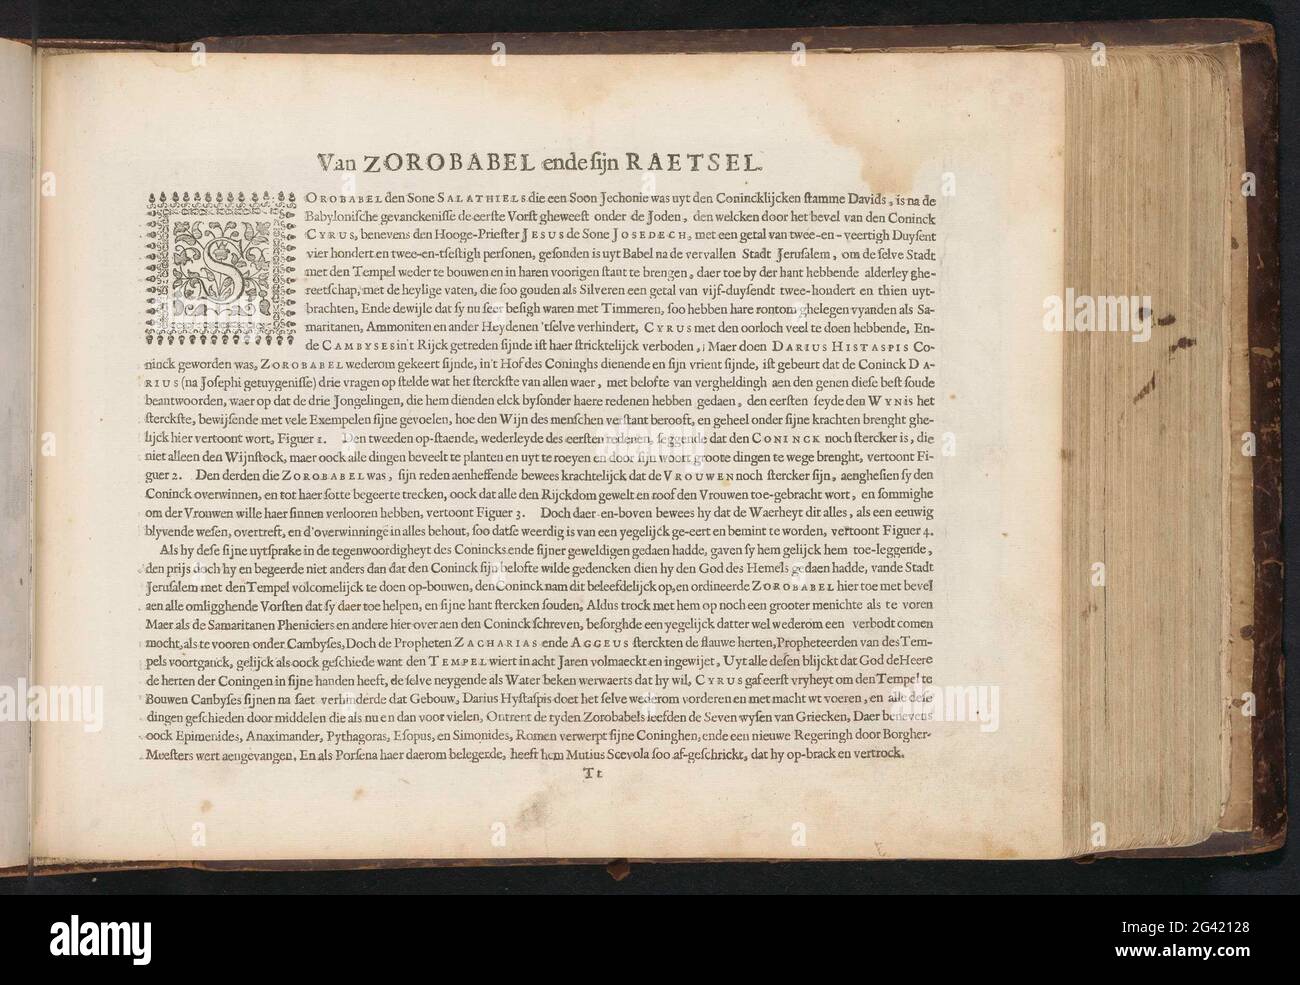 Van ZOROBABEL ende ſijn RAETSEL.
SOROBABEL den Sone SALATHIELS die een Soon Jechonie was uyt den Conincklijcken ſtamme Davids, is na de
Babyloniſche gevanckeniſſe de eerſte Vorſt gheweeſt onder de Joden, den welcken door het bevel van den Coninck
CYRUS, benevens den Hooge-Prieſter JESUS de Sone JOSEDECH, met een getal van twee-en-veertigh Duyſent
vier hondert en twee-en-tſeſtigh perſonen, geſonden is uyt Babel na de vervallen Stadt Jeruſalem, om de ſelve Stadt
met den Tempel weder te bouwen en in haren voorigen ſtant te brengen, daer toe by der hant hebbende alderley ghe-
reetſchap, met de heylige vaten, die ſoo gouden als Silveren een getal van vijf-duyſendt twee-hondert en thien uyt-
brachten, Ende dewijle dat ſy nu ſeer beſigh waren met Timmeren, ſoo hebben hare rontom ghelegen vyanden als Sa-
maritanen, Ammoniten en ander Heydenen 'tſelve verhindert, CYRUS met den oorloch veel te doen hebbende, En-
de CAMBYSES in't Rijck getreden ſijnde iſt haer ſtricktelijck verboden, Maer doen DARIUS HISTASPIS Co-
ninck geworden was, ZOROBABEL wederom gekeert ſijnde, in't Hof des Coninghs dienende en ſijn vrient ſijnde, iſt gebeurt dat de Coninck DA-
RIUS (na Joſephi getuygeniſſe) drie vragen op ſtelde wat het ſterckſte van allen waer, met belofte van vergheldingh aen den genen dieſe beſt ſoude
beantwoorden, waer op dat de drie Jongelingen, die hem dienden elck byſonder haere redenen hebben gedaen, den eerſten ſeyde den WYN is het
ſterckſte, bewijſende met vele Exempelen ſijne gevoelen, hoe den Wijn des menſchen verſtant berooft, en geheel onder ſijne krachten brenght ghe-
lijck hier vertoont wort, Figuer 1. Den tweeden op-ſtaende, wederleyde des eerſten redenen, ſeggende dat den CONINCK noch ſtercker is, die
niet alleen den Wijnſtock, maer oock alle dingen beveelt te planten en uyt te roeyen en door ſijn woort groote dingen te wege brenght, vertoont Fi-
guer 2. Den derden die ZOROBABEL was, ſijn reden aenheffende bewees krachtelijck dat de VROUWEN noch ſtercker ſijn, aengheſien ſy den
Coninck overwinnen, en tot haer ſotte begeerte trecken, oock dat alle den Rijckdom gewelt en roof den Vrouwen toe-gebracht wort, en ſommighe
om der Vrouwen wille haer ſinnen verlooren hebben, vertoont Figuer 3. Doch daer-en-boven bewees hy dat de Waerheyt dit alles, als een eeuwig
blyvende weſen, overtreft, en d'overwinninge in alles behout, ſoo datſe weerdig is van een yegelijck ge-eert en bemint te worden, vertoont Figuer 4.
Als hy deſe ſijne uytſprake in de tegenwoordigheyt des Conincks ende ſijner geweldigen gedaen hadde, gaven ſy hem gelijck hem toe-leggende,
den prijs doch hy en begeerde niet anders dan dat den Coninck ſijn belofte wilde gedencken dien hy den God des Hemels gedaen hadde, vande Stadt
Jeruſalem met den Tempel volcomelijck te doen op-bouwen, den Coninck nam dit beleefdelijck op, en ordineerde ZOROBABEL hier toe met bevel
aen alle omligghende Vorſten dat ſy daer toe helpen, en ſijne hant ſtercken ſouden, Aldus trock met hem op noch een grooter menichte als te voren
Maer als de Samaritanen Pheniciers en andere hier over aen den Coninck ſchreven, beſorghde een yegelijck datter wel wederom een verbodt comen
mocht, als te vooren onder Cambyſes, Doch de Propheten ZACHARIAS ende AGGEUS ſterckten de flauwe herten, Propheteerden van des Tem-
pels voortganck, gelijck als oock geſchiede want den TEMPEL wiert in acht Jaren volmaeckt en ingewijet, Uyt alle deſen blijckt dat God de Heere
de herten der Coningen in ſijne handen heeft, de ſelve neygende als Water beken werwaerts dat hy wil, CYRUS gaf eerſt vryheyt om den Tempel te
Bouwen Canbyſes ſijnen na ſaet verhinderde dat Gebouw, Darius Hyſtaſpis doet het ſelve wederom vorderen en met macht wt voeren, en alle deſe
dingen geſchieden door middelen die als nu en dan voor vielen, Ontrent de tyden Zorobabels leefden de Seven wyſen van Griecken, Daer benevens
oock Epimenides, Anaximander, Pythagoras, Eſopus, en Simonides, Romen verwerpt ſijne Coninghen, ende een nieuwe Regeringh door Borgher-
Meeſters wert aengevangen, En als Porſena haer daerom belegerde, heeft hem Mutius Scevola ſoo af-geſchrickt, dat hy op-brack en vertrock.
Tt
alamy
alamy
Image ID: 2G42128
www.alamy.com